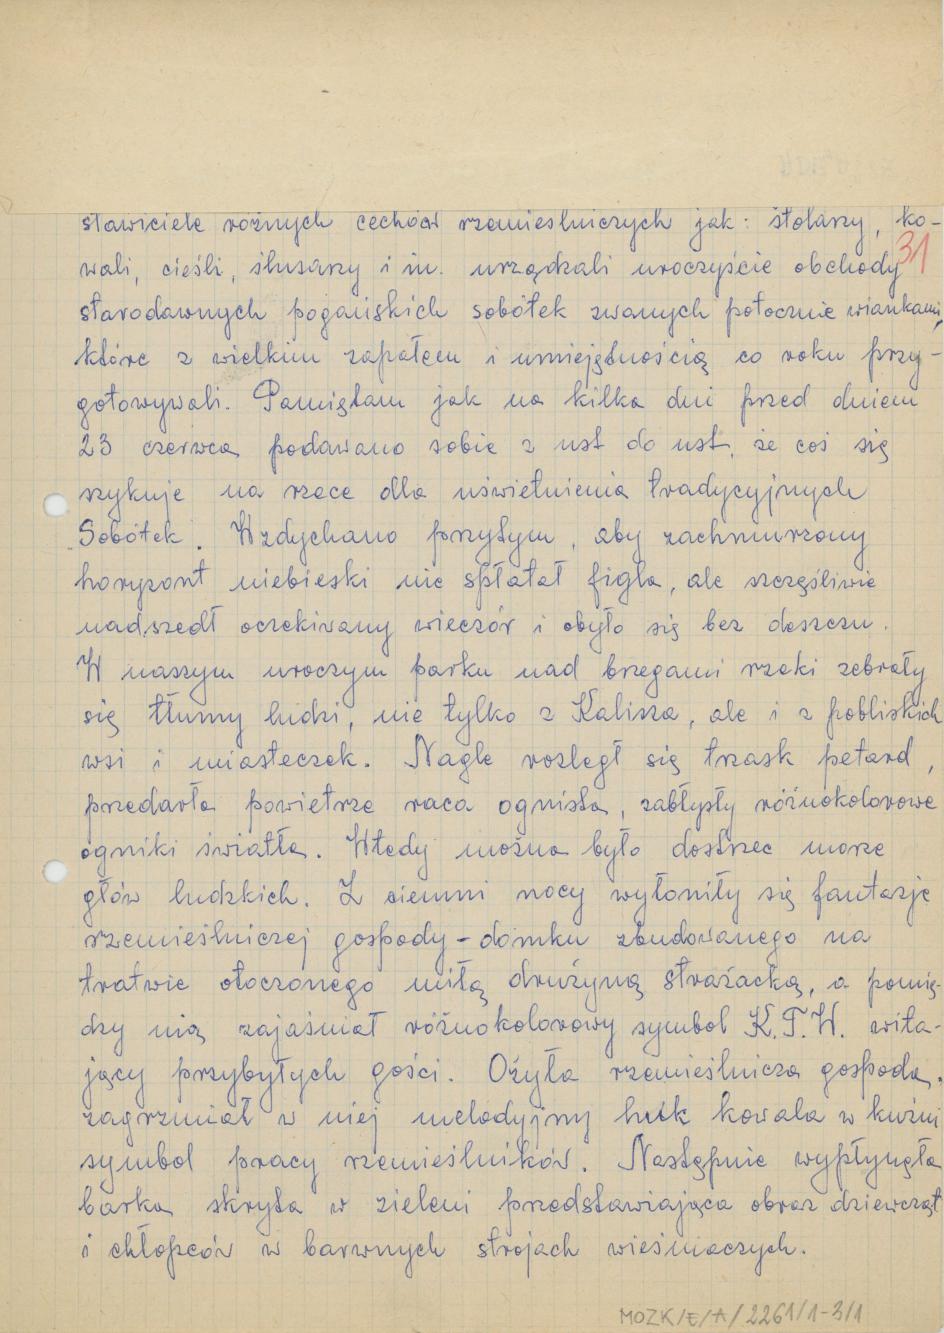 stawiciele różnych cechów rzemieślniczych jak: stolarzy, ko-
31
wali, cieśli, ślusarzy i in. urządzali uroczyście obchody
starodawnych pogańskich sobótek zwanych potocznie wiankami,
które z wielkim zapałem i umiejętnością co roku przy-
gotowywali. Pamiętam jak na kilka dni przed dniem
23 czerwca podawano sobie z ust do ust, że coś się
szykuje na rzece dla uświetnienia tradycyjnych
Sobótek. Wzdychano przytym, aby zachmurzony
horyzont niebieski nie spłatał figla, ale szczęśliwie
nadszedł oczekiwany wieczór i obyło się bez deszczu.
W naszym uroczym parku nad brzegami rzeki zebrały
się tłumy ludzi, nie tylko z Kalisza, ale i z pobliskich
wsi i miasteczek. Nagle rozległ się trzask petard,
przedarła powietrze raca ognista, zabłysły różnokolorowe
ogniki światła. Wtedy można było dostrzec morze
głów ludzkich. Z ciemni nocy wyłoniły się fantazje
rzemieślniczej gospody - domku zbudowanego na
tratwie otoczonego miłą drużyną strażacką, a pomię-
dzy nią zajaśniał różnokolorowy symbol K.T.W. wita-
jący przybyłych gości. Ożyła rzemieślnicza gospoda,
zagrzmiał w niej melodyjny huk kowala w kuźni
symbol pracy rzemieślników. Następnie wypłynęła
barka skryta w zieleni przedstawiająca obraz dziewcząt
i chłopców w barwnych strojach wieśniaczych.
MOZK/E/A/2261/1-3/1